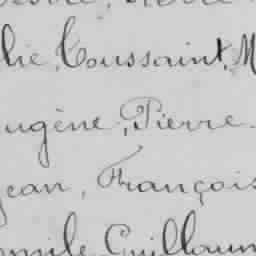 lie, Toussaint, M
ugène, Pierre.
Jean, François
mile Guillaum